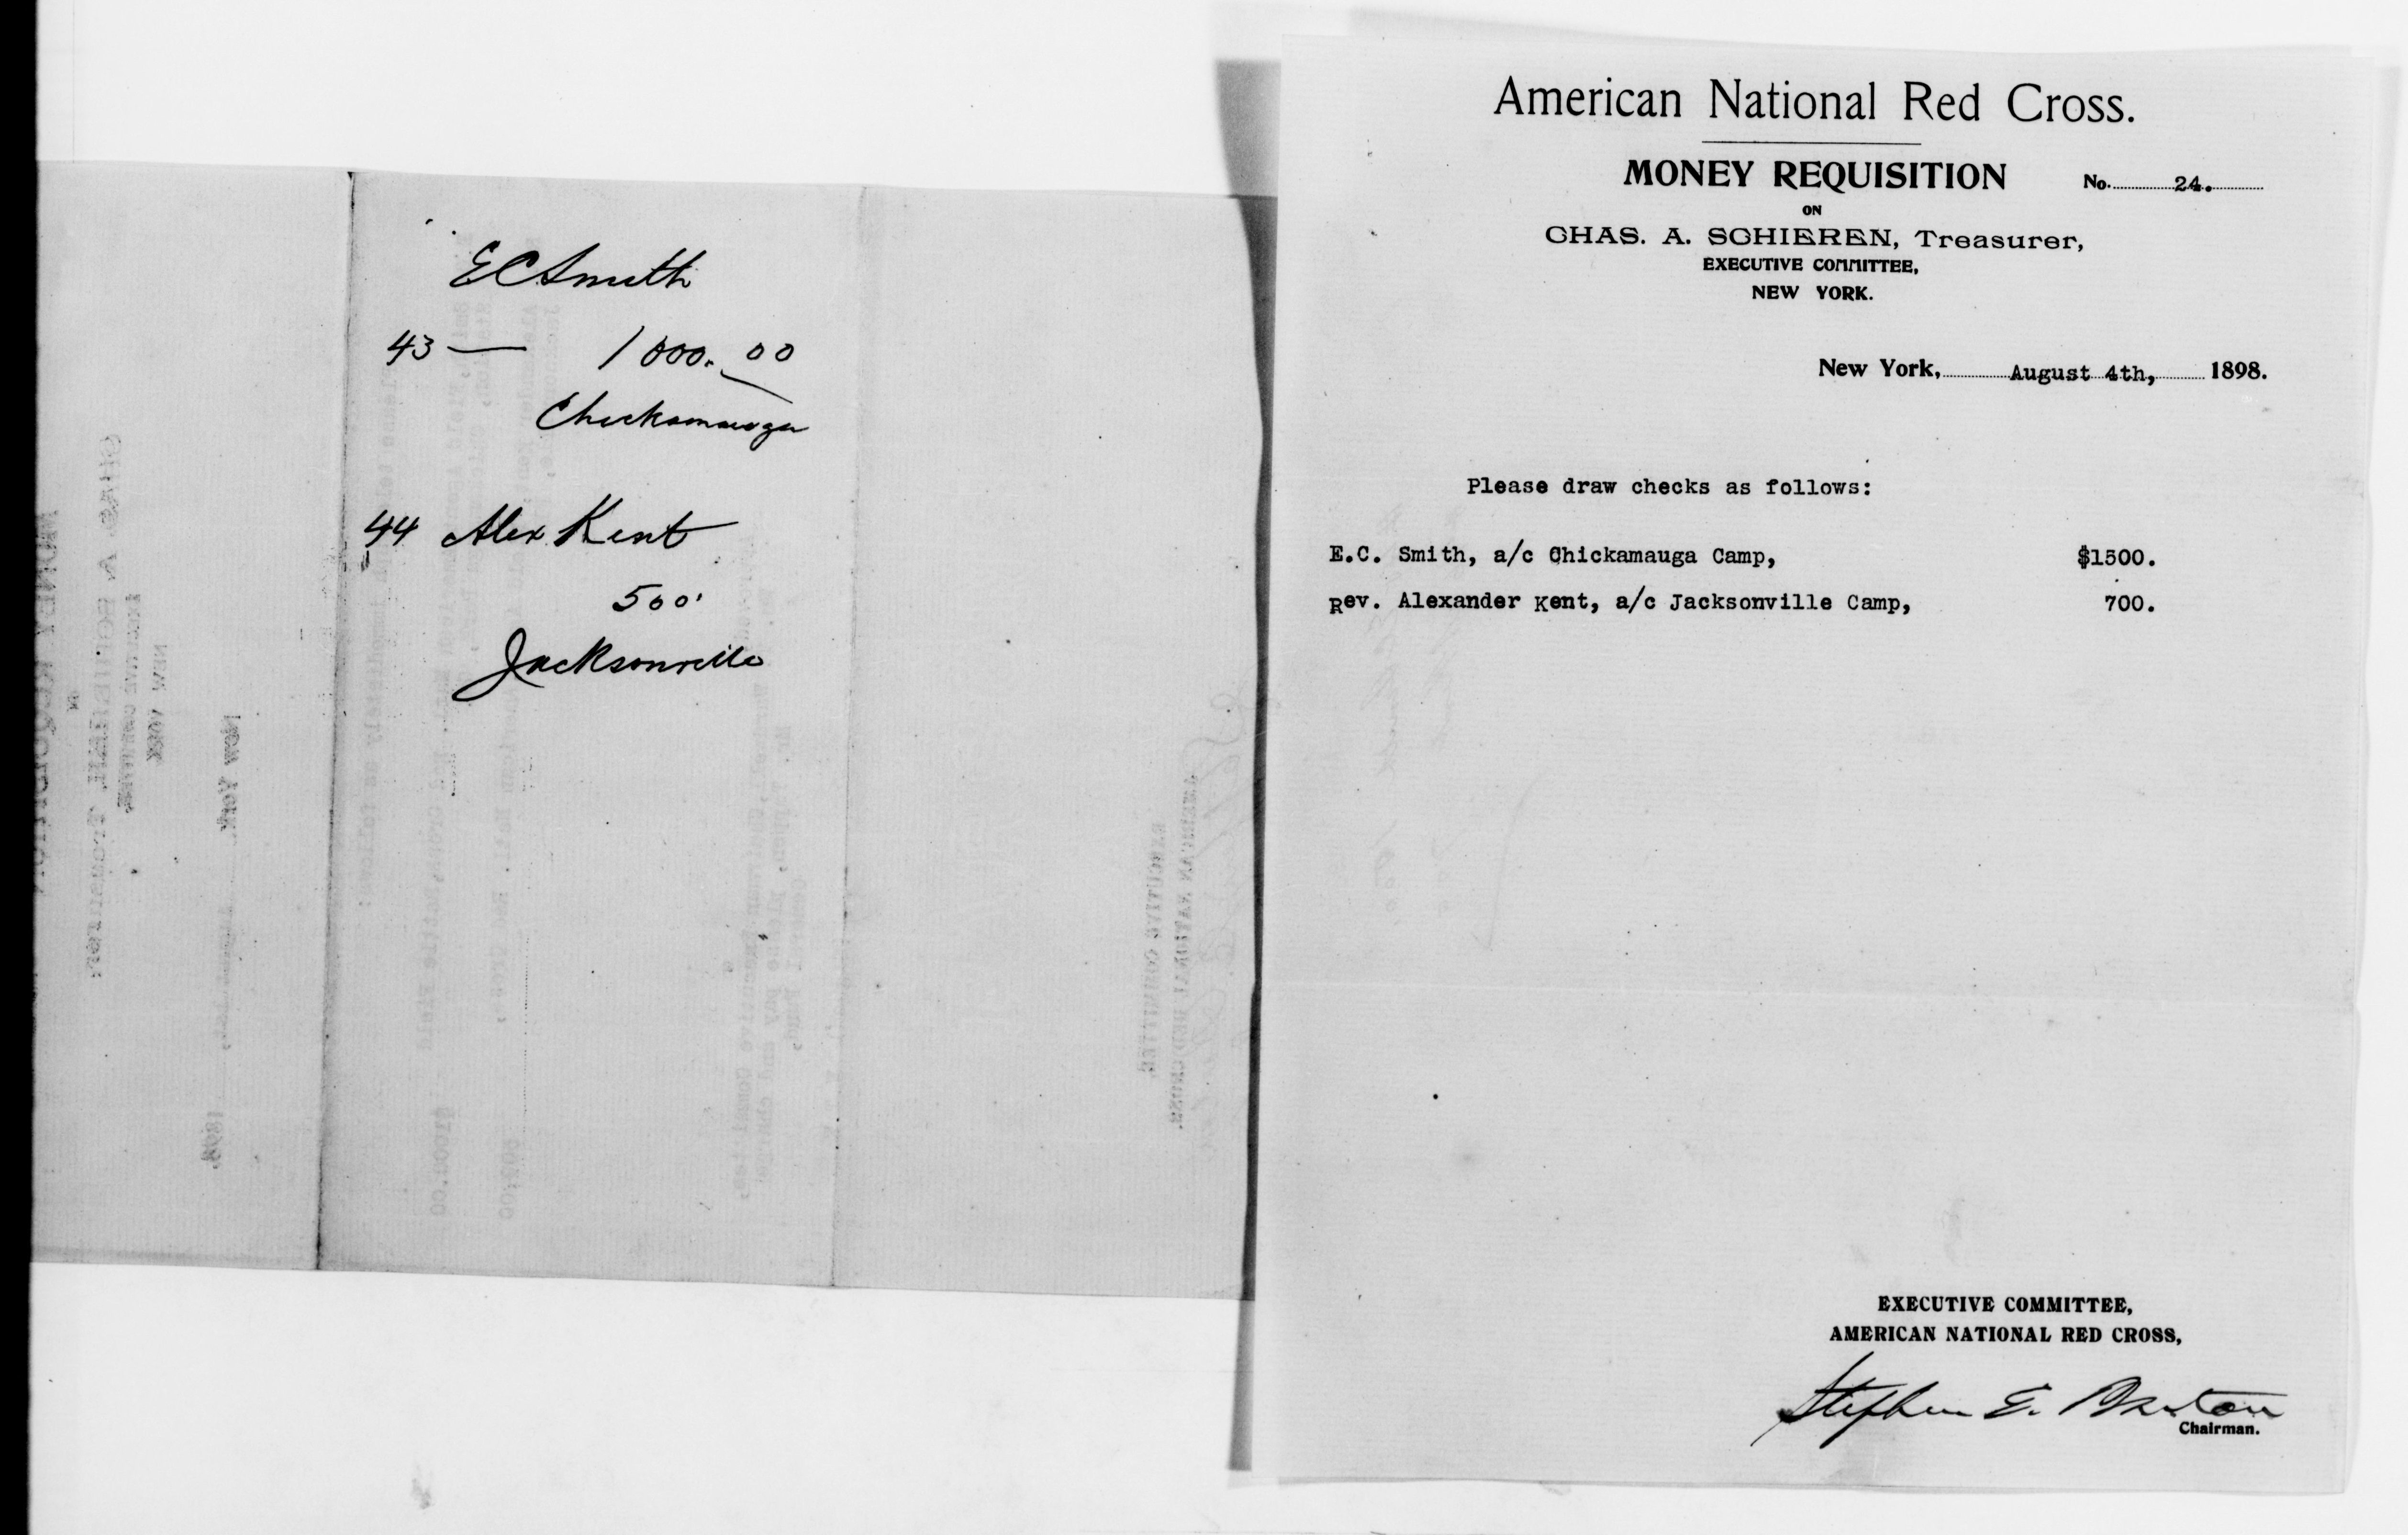 E C Smith
43 — 1000.00
Chickamauga
44 Alex. Kent
500
Jacksonville
American National Red Cross.
MONEY REQUISITION No. 24.
ON
CHAS. A. SCHIEREN, Treasurer,
EXECUTIVE COMMITTEE,
NEW YORK.
New York, August 4th, 1898.
Please draw checks as follows:
E.C. Smith, a/c Chickamauga Camp, $1500.
Rev. Alexander Kent, a/c Jacksonville Camp, 700.
EXECUTIVE COMMITTEE,
AMERICAN NATIONAL RED CROSS,
Stephen E. Barton
Chairman.